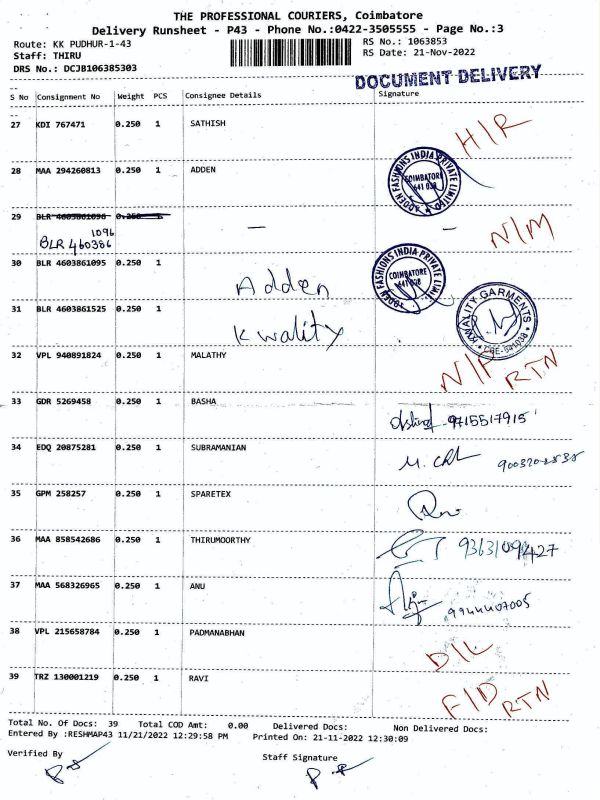 THE PROFESSIONAL COURIERS, Coimbatore
Delivery Runsheet - P43 - Phone No.:0422-3505555 - Page No.:3
Route: KK PUDHUR-1-43
Staff: THIRU
DRS No.: DCJB106385303
RS No.: 1063853
RS Date: 21-Nov-2022
DOCUMENT DELIVERY
S No Consignment No Weight PCS Consignee Details Signature
27 KDI 767471 0.250 1 SATHISH H/R
28 MAA 294260813 0.250 1 ADDEN
ADDEN FASHIONS INDIA PRIVATE LIMITED
COIMBATORE
641 038
29 BLR 4603861096 0.250 1 — — N/M
1096
BLR 460386
30 BLR 4603861095 0.250 1 Adden
ADDEN FASHIONS INDIA PRIVATE LIMITED
COIMBATORE
641 038
31 BLR 4603861525 0.250 1 Kwality
KWALITY GARMENTS
CBE-641038
32 VPL 940891824 0.250 1 MALATHY N/P RTN
33 GDR 5269458 0.250 1 BASHA 9715517915
34 EDQ 20875281 0.250 1 SUBRAMANIAN
35 GPM 258257 0.250 1 SPARETEX
36 MAA 858542686 0.250 1 THIRUMOORTHY 9363109427
37 MAA 568326965 0.250 1 ANU 9944407005
38 VPL 215658784 0.250 1 PADMANABHAN D/L
39 TRZ 130001219 0.250 1 RAVI F/D RTN
Total No. Of Docs: 39 Total COD Amt: 0.00 Delivered Docs: Non Delivered Docs:
Entered By :RESHMAP43 11/21/2022 12:29:58 PM Printed On: 21-11-2022 12:30:09
Verified By
Staff Signature